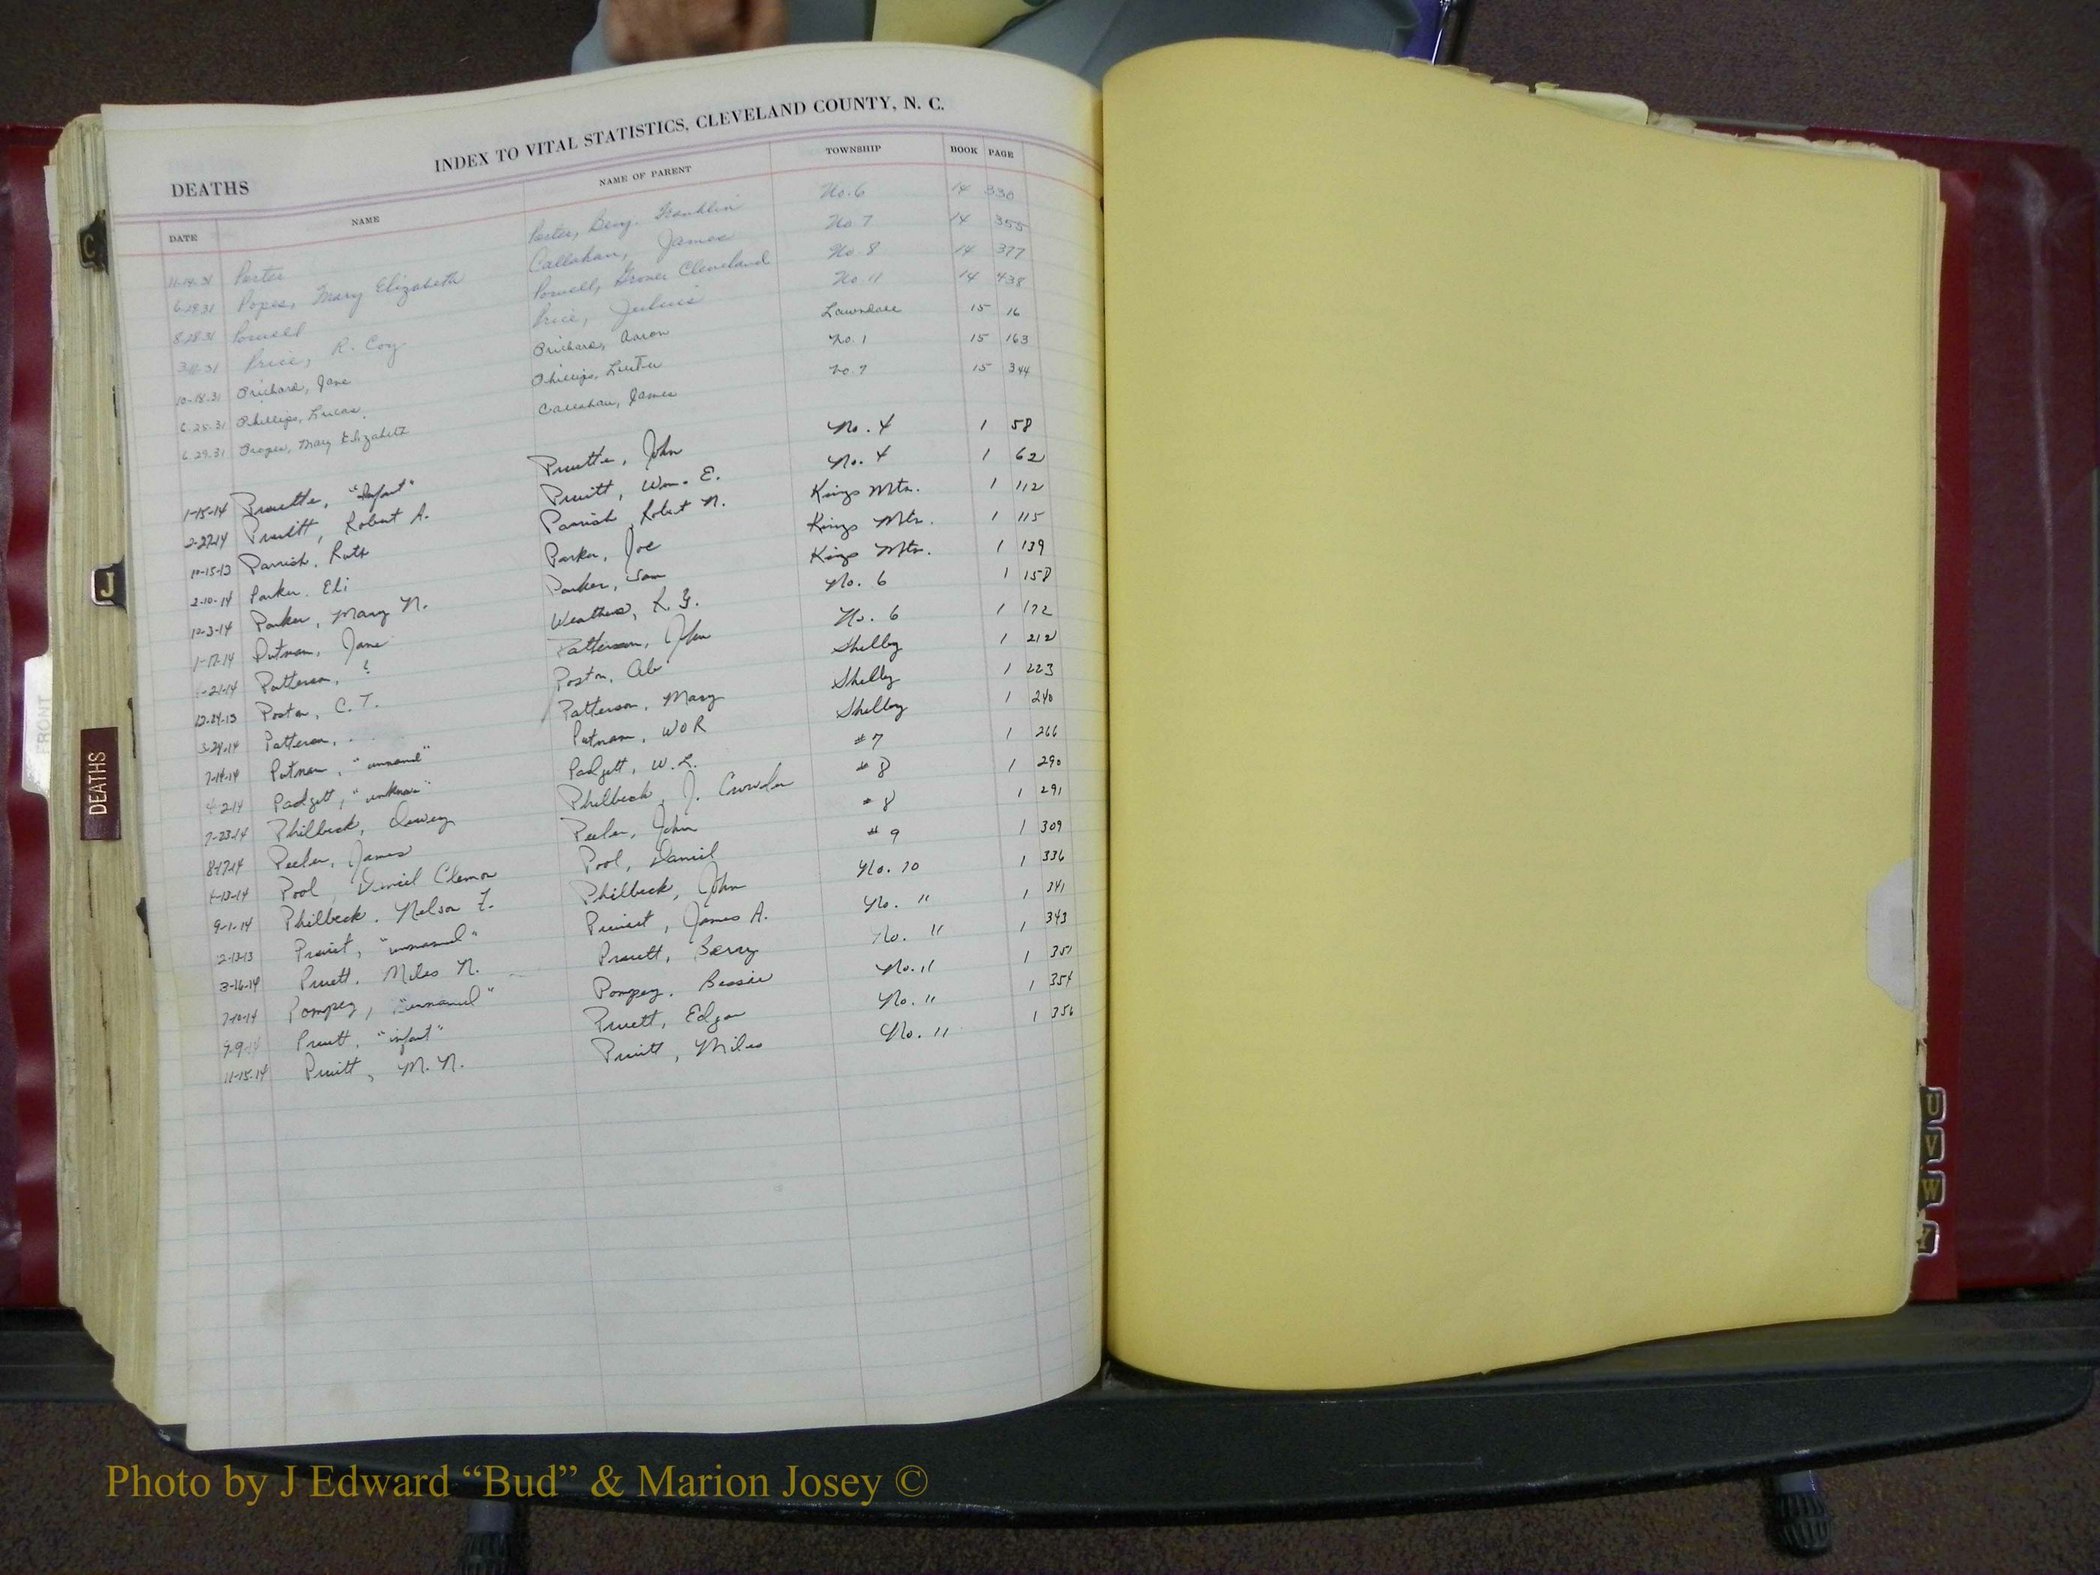 INDEX TO VITAL STATISTICS, CLEVELAND COUNTY, N. C.
DEATHS
DATE NAME NAME OF PARENT TOWNSHIP BOOK PAGE
11-14-31 Porter Porter, Benj. Franklin No. 6 14 330
6-29-31 Popes, Mary Elizabeth Callahan, James No 7 14 355
8-28-31 Powell Powell, Grover Cleveland No. 8 14 377
3-11-31 Price, R. Coy Price, Julius No 11 14 438
10-18-31 Prichard, Jane Prichard, Aaron Lawndale 15 16
6-25-31 Phillips, Lucas Phillips, No. 1 15 163
6-29-31 Mary Elizabeth Callahan, James No 7 15 344
1-15-14 Pruette, "Infant" Pruette, John No. 4 1 58
2-27-14 Pruitt, Robert A. Pruitt, Wm. E. No. 4 1 62
10-15-13 Parrish, Ruth Parrish, Robert N. Kings Mtn. 1 112
2-10-14 Parker, Eli Parker, Joe Kings Mtn. 1 115
12-3-14 Parker, Mary N. Parker, Sam Kings Mtn. 1 139
1-17-14 Putnam, Jane Weathers, No. 6 1 158
-21-14 Patterson, ? Patterson, John No. 6 1 172
12-24-13 Poston, C. T. Poston, Abe Shelby 1 212
3-29-14 Patterson, Patterson, Mary Shelby 1 223
7-14-14 Putnam, "unnamed" Putnam, WOR Shelby 1 240
4-2-14 Padgett, "unknown" Padgett, W. L. #7 1 266
7-23-14 Philbeck, Dewey Philbeck, J. Crowder #8 1 290
8-17-14 Peeler, James Peeler, John #8 1 291
4-13-14 Pool, Daniel Pool, Daniel #9 1 309
9-1-14 Philbeck, Nelson F. Philbeck, John No. 10 1 336
2-13-13 "unnamed" James A. No. 11 1 341
3-16-14 Pruett, Miles N. Pruett, Berry No. 11 1 343
7-10-14 Pompey, "unnamed" Pompey, Bessie No. 11 1 351
9-9-14 Pruett, "infant" Pruett, Edgar No. 11 1 354
11-15-14 Pruitt, M. N. Pruitt, Miles No. 11 1 356
C
J
FRONT
DEATHS
U
V
W
Y
Photo by J Edward “Bud” & Marion Josey ©